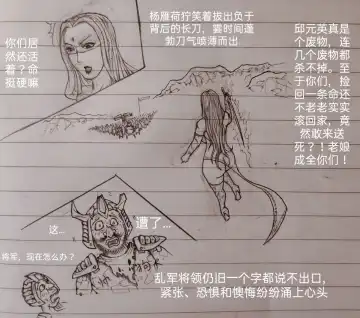 你们居
然还活
着？命
挺硬嘛
杨雁荷狞笑着拔出负于
背后的长刀，霎时间蓬
勃刀气喷薄而出
邱元英真是
个废物，连
几个废物都
杀不掉。至
于你们，捡
回一条命还
不老老实实
滚回家，竟
然敢来送
死？！老娘
成全你们！
这...
遭了...
将军，现在怎么办？
乱军将领仍旧一个字都说不出口，
紧张、恐惧和懊悔纷纷涌上心头